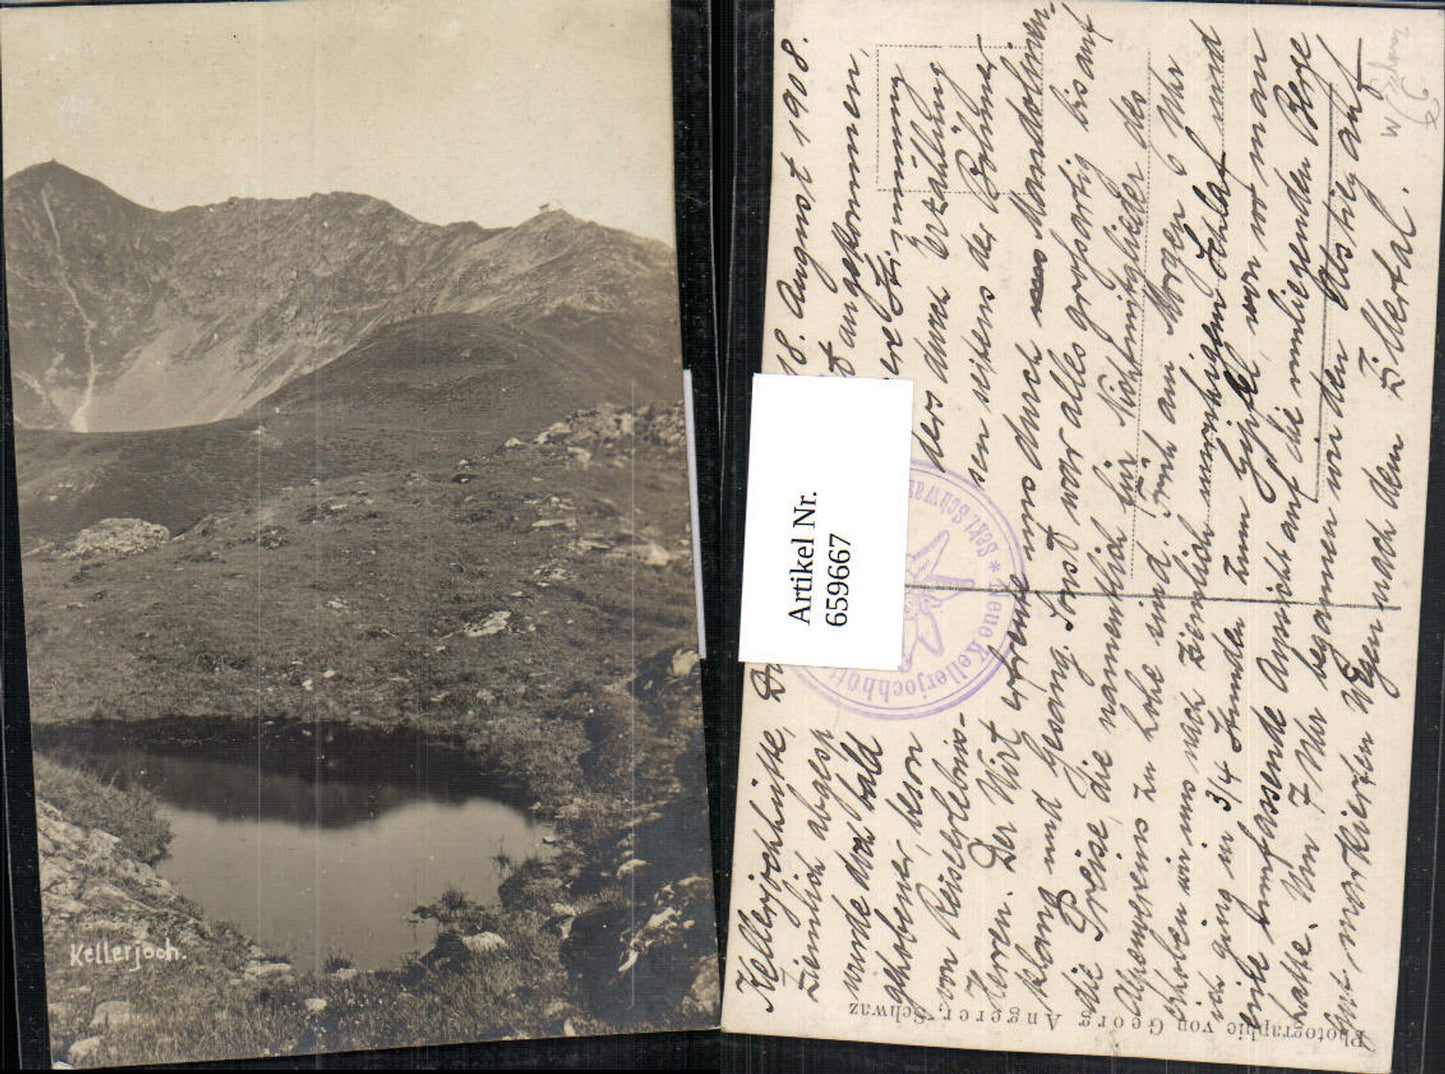 Kellerjoch.
Artikel Nr.
659667
Kellerjochhütte, 18. August 1908.
Ziemlich angekommen,
wurde doch bald Stimmung
gehobener, beson ders durch Erzählung
von Reiseerlebnis- sen seitens der
Herren. Der Wirt erfreute uns durch Mandolinen-
klang und Gesang. Sonst war alles großartig bis auf
die Preise, die namentlich für Nichtmitglieder des
Alpenvereins zu hohe sind. Früh am Morgen 6 Uhr
erhoben wir uns nach ziemlich unruhigem Schlaf und
ich ging in 3/4 Stunden zum Gipfel, von wo man
eine umfassende Aussicht auf die umliegenden Berge
hatte. Um 7 Uhr begannen wir den Abstieg auf
gut markierten Wegen nach dem Zillertal.
* Neue Kellerjochhütte * Sekt. Schwaz
Photographie von Georg Angerer, Schwaz